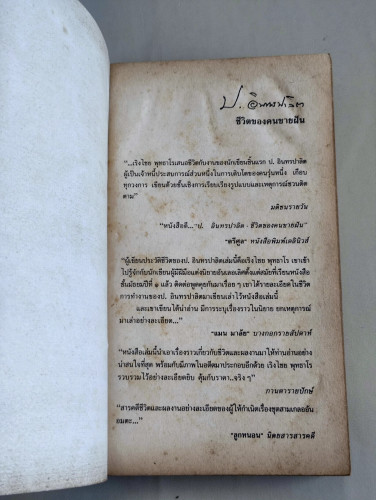 ป. อินทรปาลิต
ชีวิตของคนขายฝัน
"...เริงไชย พุทธาโรเสนอชีวิตกับงานของนักเขียนชั้นแรก ป. อินทรปาลิต
ผู้เป็นเจ้าหนี้ประสบการณ์ส่วนหนึ่งในการเติบโตของคนรุ่นหนึ่ง เกือบ
ทุกวงการ เขียนด้วยชั้นเชิงการเรียบเรียงรูปแบบและเหตุการณ์ชวนติด
ตาม"
มติชนรายวัน
"หนังสือดี..."ป. อินทรปาลิต - ชีวิตของคนขายฝัน"
"ตรีศูล" หนังสือพิมพ์เดลินิวส์
"ผู้เขียนประวัติชีวิตของป. อินทรปาลิตเล่มนี้คือเริงไชย พุทธาโร เขาเข้า
ไปรู้จักกับนักเขียนผู้มีฝีมือแต่งนิยายอันเลอเลิศตั้งแต่สมัยที่เรียนหนังสือ
ชั้นมัธยมปีที่ ๑ แล้ว ติดต่อพูดคุยกันมาเรื่อย ๆ เขาได้รายละเอียดในชีวิต
การทำงานของป. อินทรปาลิตมาเขียนเล่าไว้หนังสือเล่มนี้
และเขาเขียนได้น่าอ่าน มีการระบุเรื่องราวในนิยาย ยกเหตุการณ์
มาเล่าอย่างละเอียด..."
"แมน มาลัย" บางกอกรายสัปดาห์
"หนังสือเล่มนี้นำเอาเรื่องราวเกี่ยวกับชีวิตและผลงานมาให้ท่านอ่านอย่าง
น่าสนใจที่สุด พร้อมกับมีภาพในอดีตมาประกอบอีกด้วย เริงไชย พุทธาโร
รวบรวมไว้อย่างละเอียดยิบ คุ้มกับราคา..จริง ๆ"
กานดารายปักษ์
"สารคดีชีวิตและผลงานอย่างละเอียดของผู้ให้กำเนิดเรื่องชุดสามเกลออัน
อมตะ..."
"ลูกหนอน" นิตยสารสารคดี